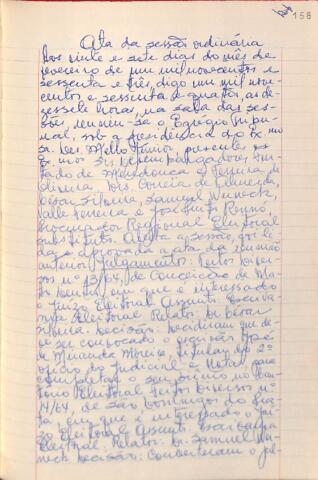 158
Ata da sessão ordinária
Aos vinte e sete dias do mês de
fevereiro de um mil novecentos e
sessenta e três, digo um mil nove-
centos e sessenta e quatro, às de-
zessete horas, na sala das ses-
sões reuniu-se o Egrégio Tribu-
nal, sob a presidência do Exmo
Sr. Des. Mello Junior, presentes os
Exmos Srs Desembargadores Fur-
tado de Mendonça e Ferreira de
Oliveira, Drs Correia de Almeida,
Cesar Silveira, Samuel
Valle Ferreira e
Procurador Regional Eleitoral
substituto. Aberta a sessão, foi li-
da e aprovada a ata da reunião
anterior. Julgamentos: Feitos Diver-
sos nº 13/64, de Conceição do Ma-
to Dentro, em que é interessado
o Juízo Eleitoral. Assunto: Escriva-
nia Eleitoral. Relator: Dr Cesar
Silveira. Decisão: Decidiram que de-
ve ser convocado o escrivão José
de Miranda Moreira, titular do 2º
ofício do Judicial e Notas, para
completar o seu biênio no Car-
tório Eleitoral. Feitos Diversos nº
14/64, de São Domingos do Prata,
em que é interessado o Juí-
zo Eleitoral. Assunto: Escrivania
Eleitoral. Relator: Dr. Samuel
Decisão: Converteram o jul-